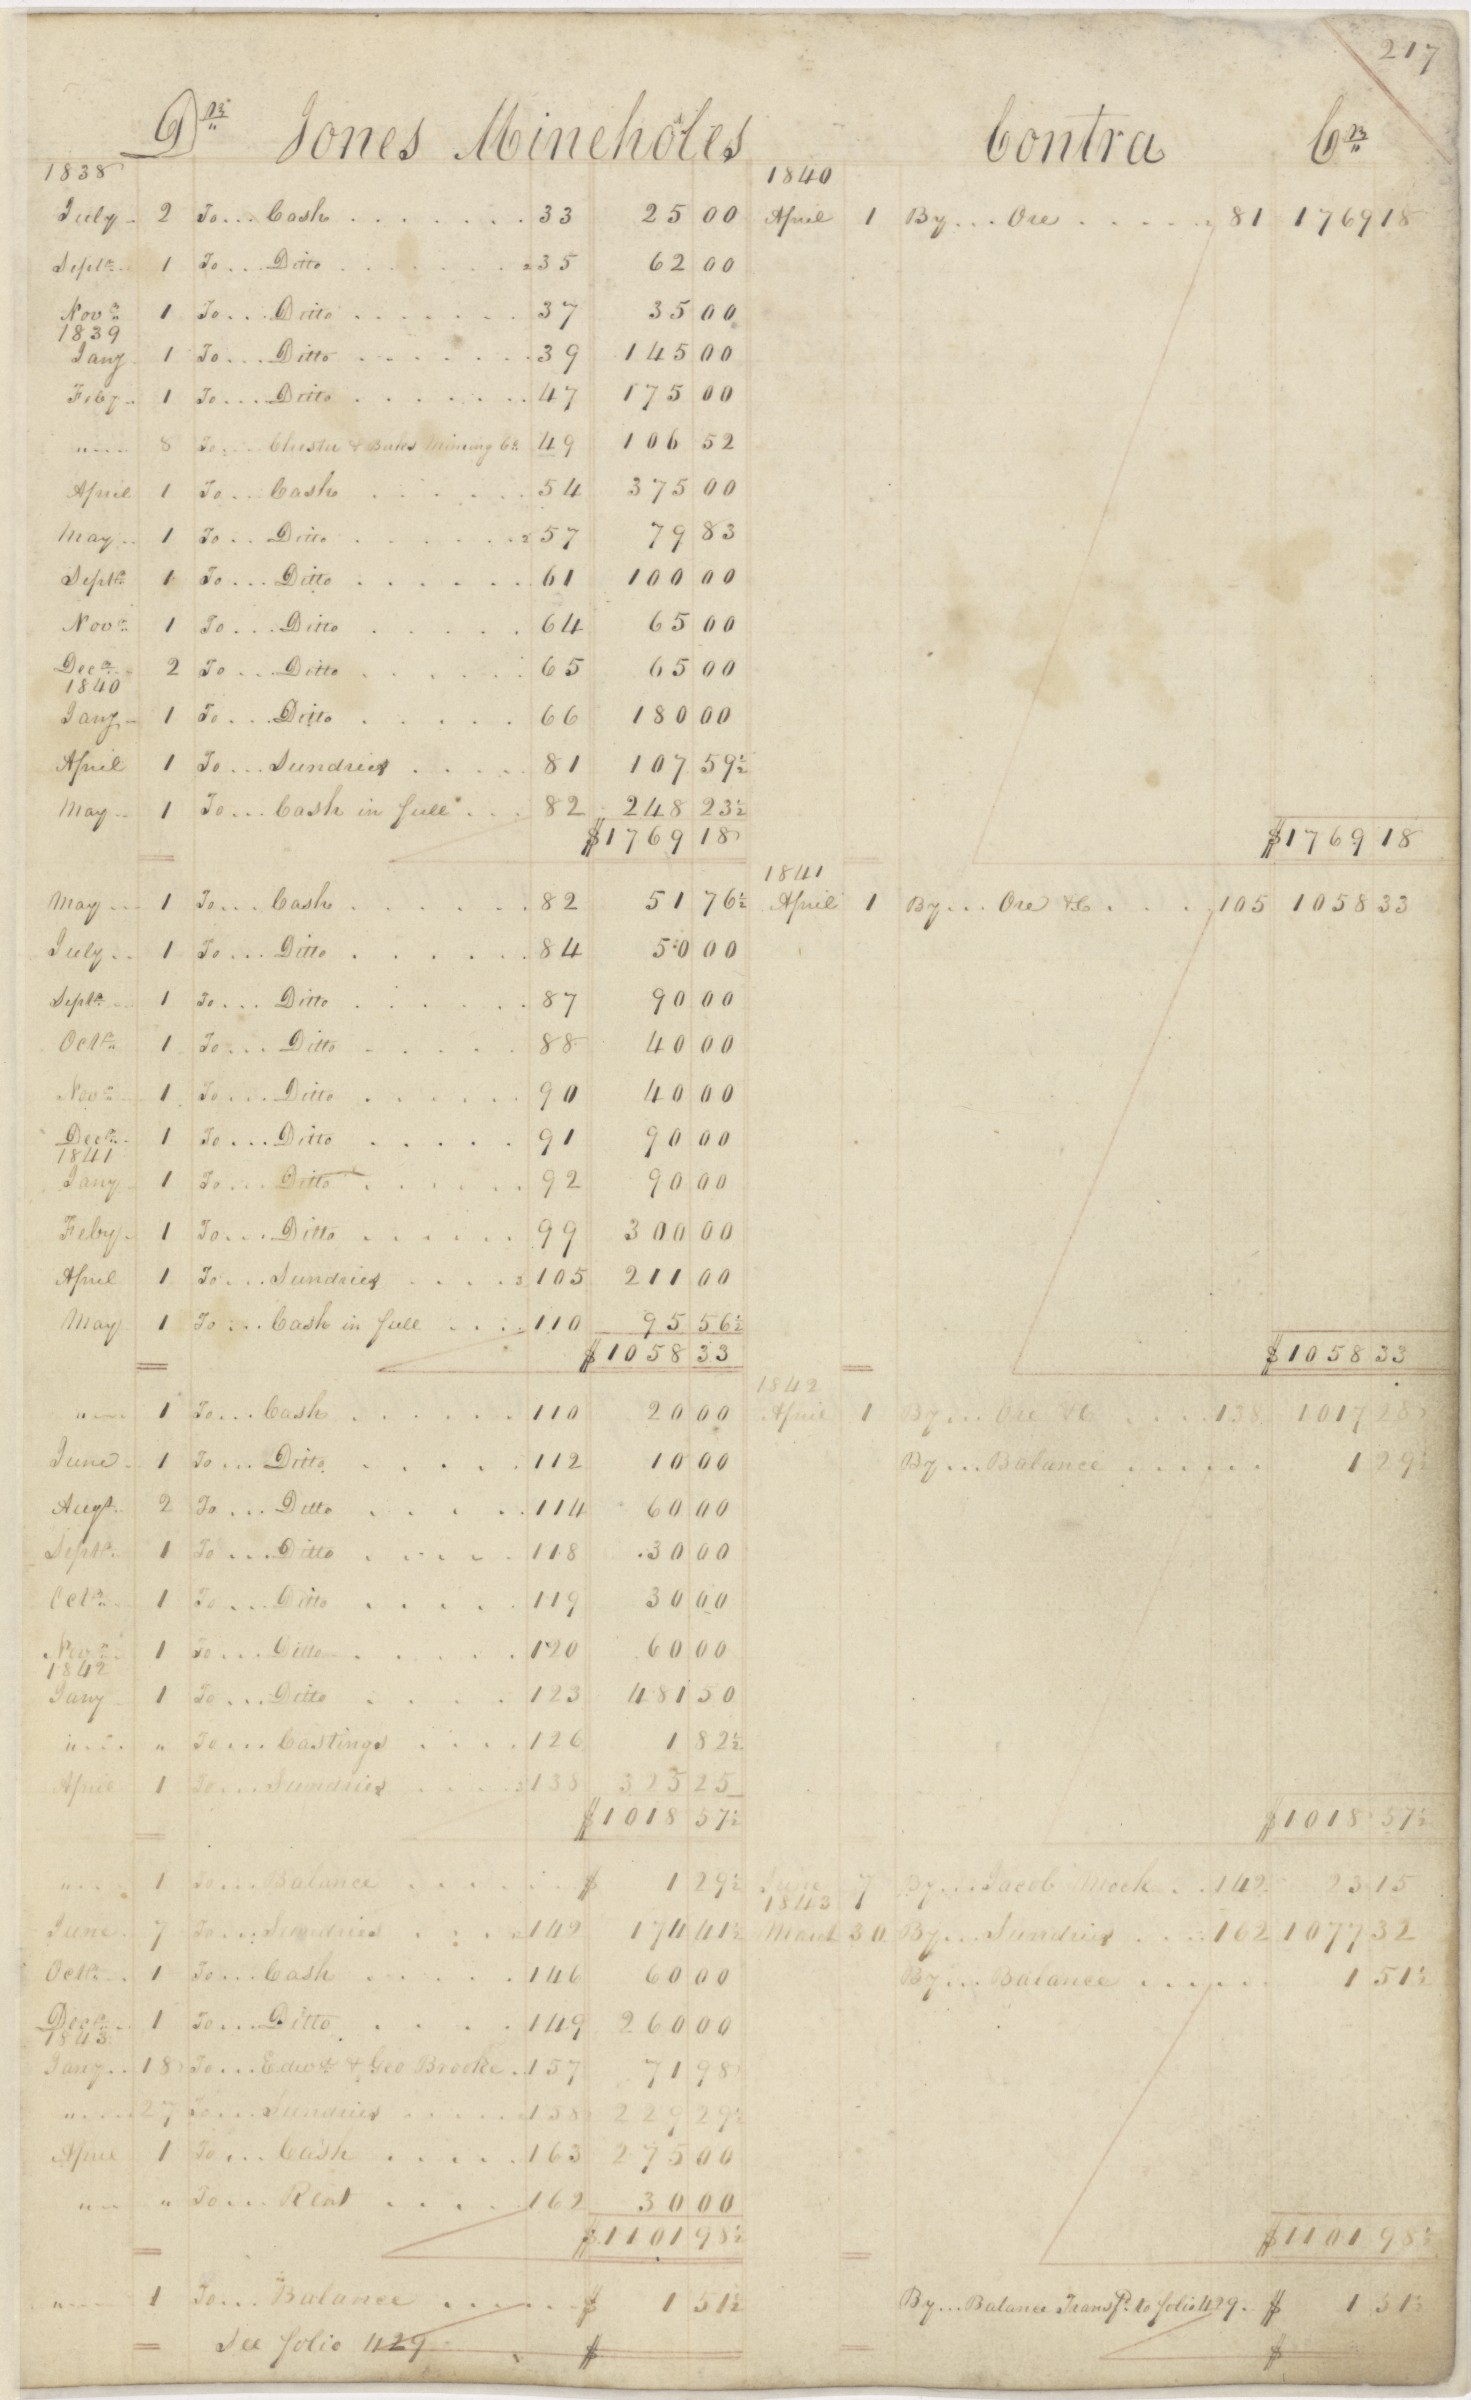 217
Drs Jones Mineholes Contra Crs
1838 1840
July 2 To... Cash 33 25 00 April 1 By... Ore 81 1769 18
Septr 1 To... Ditto 35 62 00
Novr 1 To... Ditto 37 35 00
1839
Jany 1 To... Ditto 39 145 00
Feby 1 To... Ditto 47 175 00
" 8 To... Chester & Bucks Mining Co 49 106 52
April 1 To... Cash 54 375 00
May 1 To... Ditto 57 79 83
Septr 1 To... Ditto 61 100 00
Novr 1 To... Ditto 64 65 00
Decr 2 To... Ditto 65 65 00
1840
Jany 1 To... Ditto 66 180 00
April 1 To... Sundries 81 107 59½
May 1 To... Cash in full 82 248 23½
$1769 18 $1769 18
1841
May 1 To... Cash 82 51 76½ April 1 By... Ore &c 105 1058 33
July 1 To... Ditto 84 50 00
Septr 1 To... Ditto 87 90 00
Octr 1 To... Ditto 88 40 00
Novr 1 To... Ditto 90 40 00
Decr 1 To... Ditto 91 90 00
1841
Jany 1 To... Ditto 92 90 00
Feby 1 To... Ditto 99 300 00
April 1 To... Sundries 105 211 00
May 1 To... Cash in full 110 95 56½
$1058 33 $1058 33
1842
" 1 To... Cash 110 20 00 April 1 By... Ore &c 138 1017 28
June 1 To... Ditto 112 10 00 By... Balance 1 29½
Augt 2 To... Ditto 114 60 00
Septr 1 To... Ditto 118 30 00
Octr 1 To... Ditto 119 30 00
Novr 1 To... Ditto 120 60 00
1842
Jany 1 To... Ditto 123 481 50
" " To... Castings 126 1 82½
April 1 To... Sundries 138 325 25
$1018 57½ $1018 57½
" 1 To... Balance $ 1 29½ June 7 By... Jacob Mock 142 23 15
1843
June 7 To... Sundries 142 174 41½ March 30 By... Sundries 162 1077 32
Octr 1 To... Cash 146 60 00 By... Balance 1 51½
Decr 1 To... Ditto 149 260 00
1843
Jany 18 To... Edwd & Geo Brooke 157 71 98
" 27 To... Sundries 158 229 29½
April 1 To... Cash 163 275 00
" " To... Rent 162 30 00
$1101 98½ $1101 98½
" 1 To... Balance $ 1 51½ By... Balance Transfd to folio 429 $ 1 51½
See folio 429 $ $